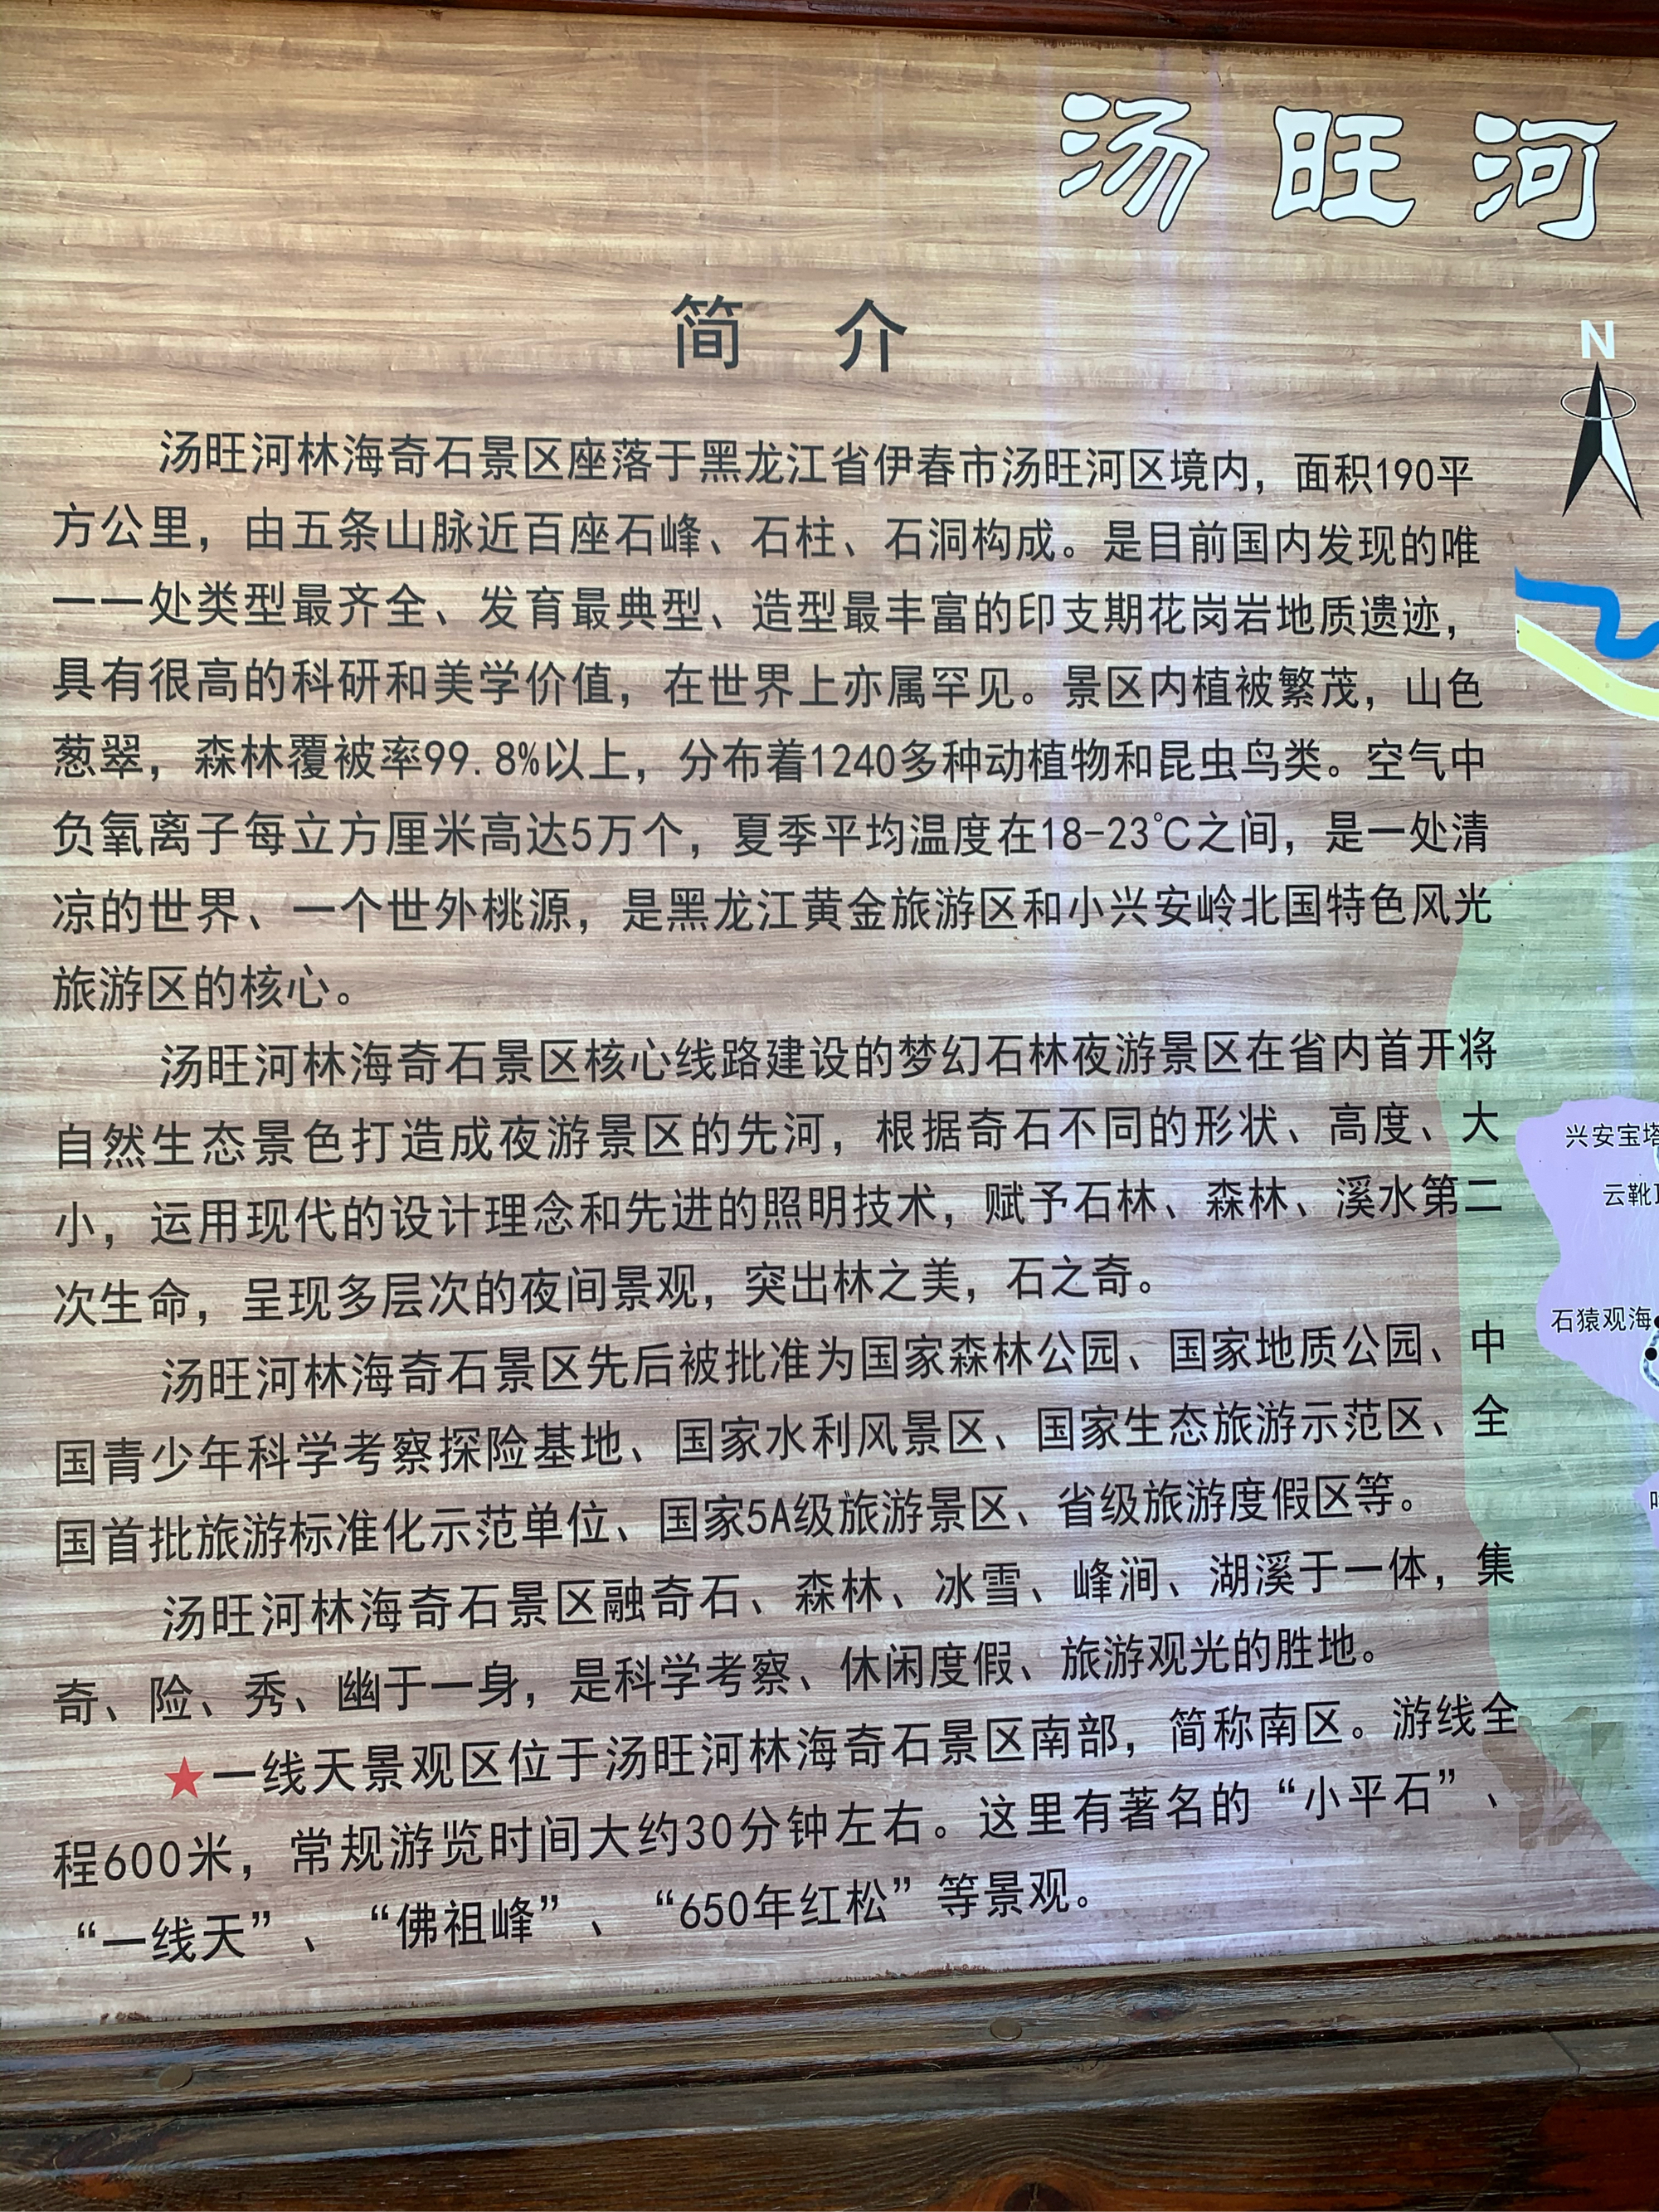 汤旺河
简介
N
汤旺河林海奇石景区座落于黑龙江省伊春市汤旺河区境内，面积190平
方公里，由五条山脉近百座石峰、石柱、石洞构成。是目前国内发现的唯
一一处类型最齐全、发育最典型、造型最丰富的印支期花岗岩地质遗迹，
具有很高的科研和美学价值，在世界上亦属罕见。景区内植被繁茂，山色
葱翠，森林覆被率99.8%以上，分布着1240多种动植物和昆虫鸟类。空气中
负氧离子每立方厘米高达5万个，夏季平均温度在18-23℃之间，是一处清
凉的世界、一个世外桃源，是黑龙江黄金旅游区和小兴安岭北国特色风光
旅游区的核心。
汤旺河林海奇石景区核心线路建设的梦幻石林夜游景区在省内首开将
自然生态景色打造成夜游景区的先河，根据奇石不同的形状、高度、大
小，运用现代的设计理念和先进的照明技术，赋予石林、森林、溪水第二
次生命，呈现多层次的夜间景观，突出林之美，石之奇。
汤旺河林海奇石景区先后被批准为国家森林公园、国家地质公园、中
国青少年科学考察探险基地、国家水利风景区、国家生态旅游示范区、全
国首批旅游标准化示范单位、国家5A级旅游景区、省级旅游度假区等。
汤旺河林海奇石景区融奇石、森林、冰雪、峰涧、湖溪于一体，集
奇、险、秀、幽于一身，是科学考察、休闲度假、旅游观光的胜地。
★一线天景观区位于汤旺河林海奇石景区南部，简称南区。游线全
程600米，常规游览时间大约30分钟左右。这里有著名的“小平石”、
“一线天”、“佛祖峰”、“650年红松”等景观。
兴安宝塔
云靴
石猿观海